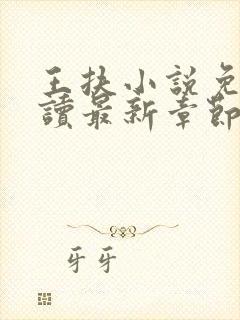 王扶小說免
讀最新章節
牙牙